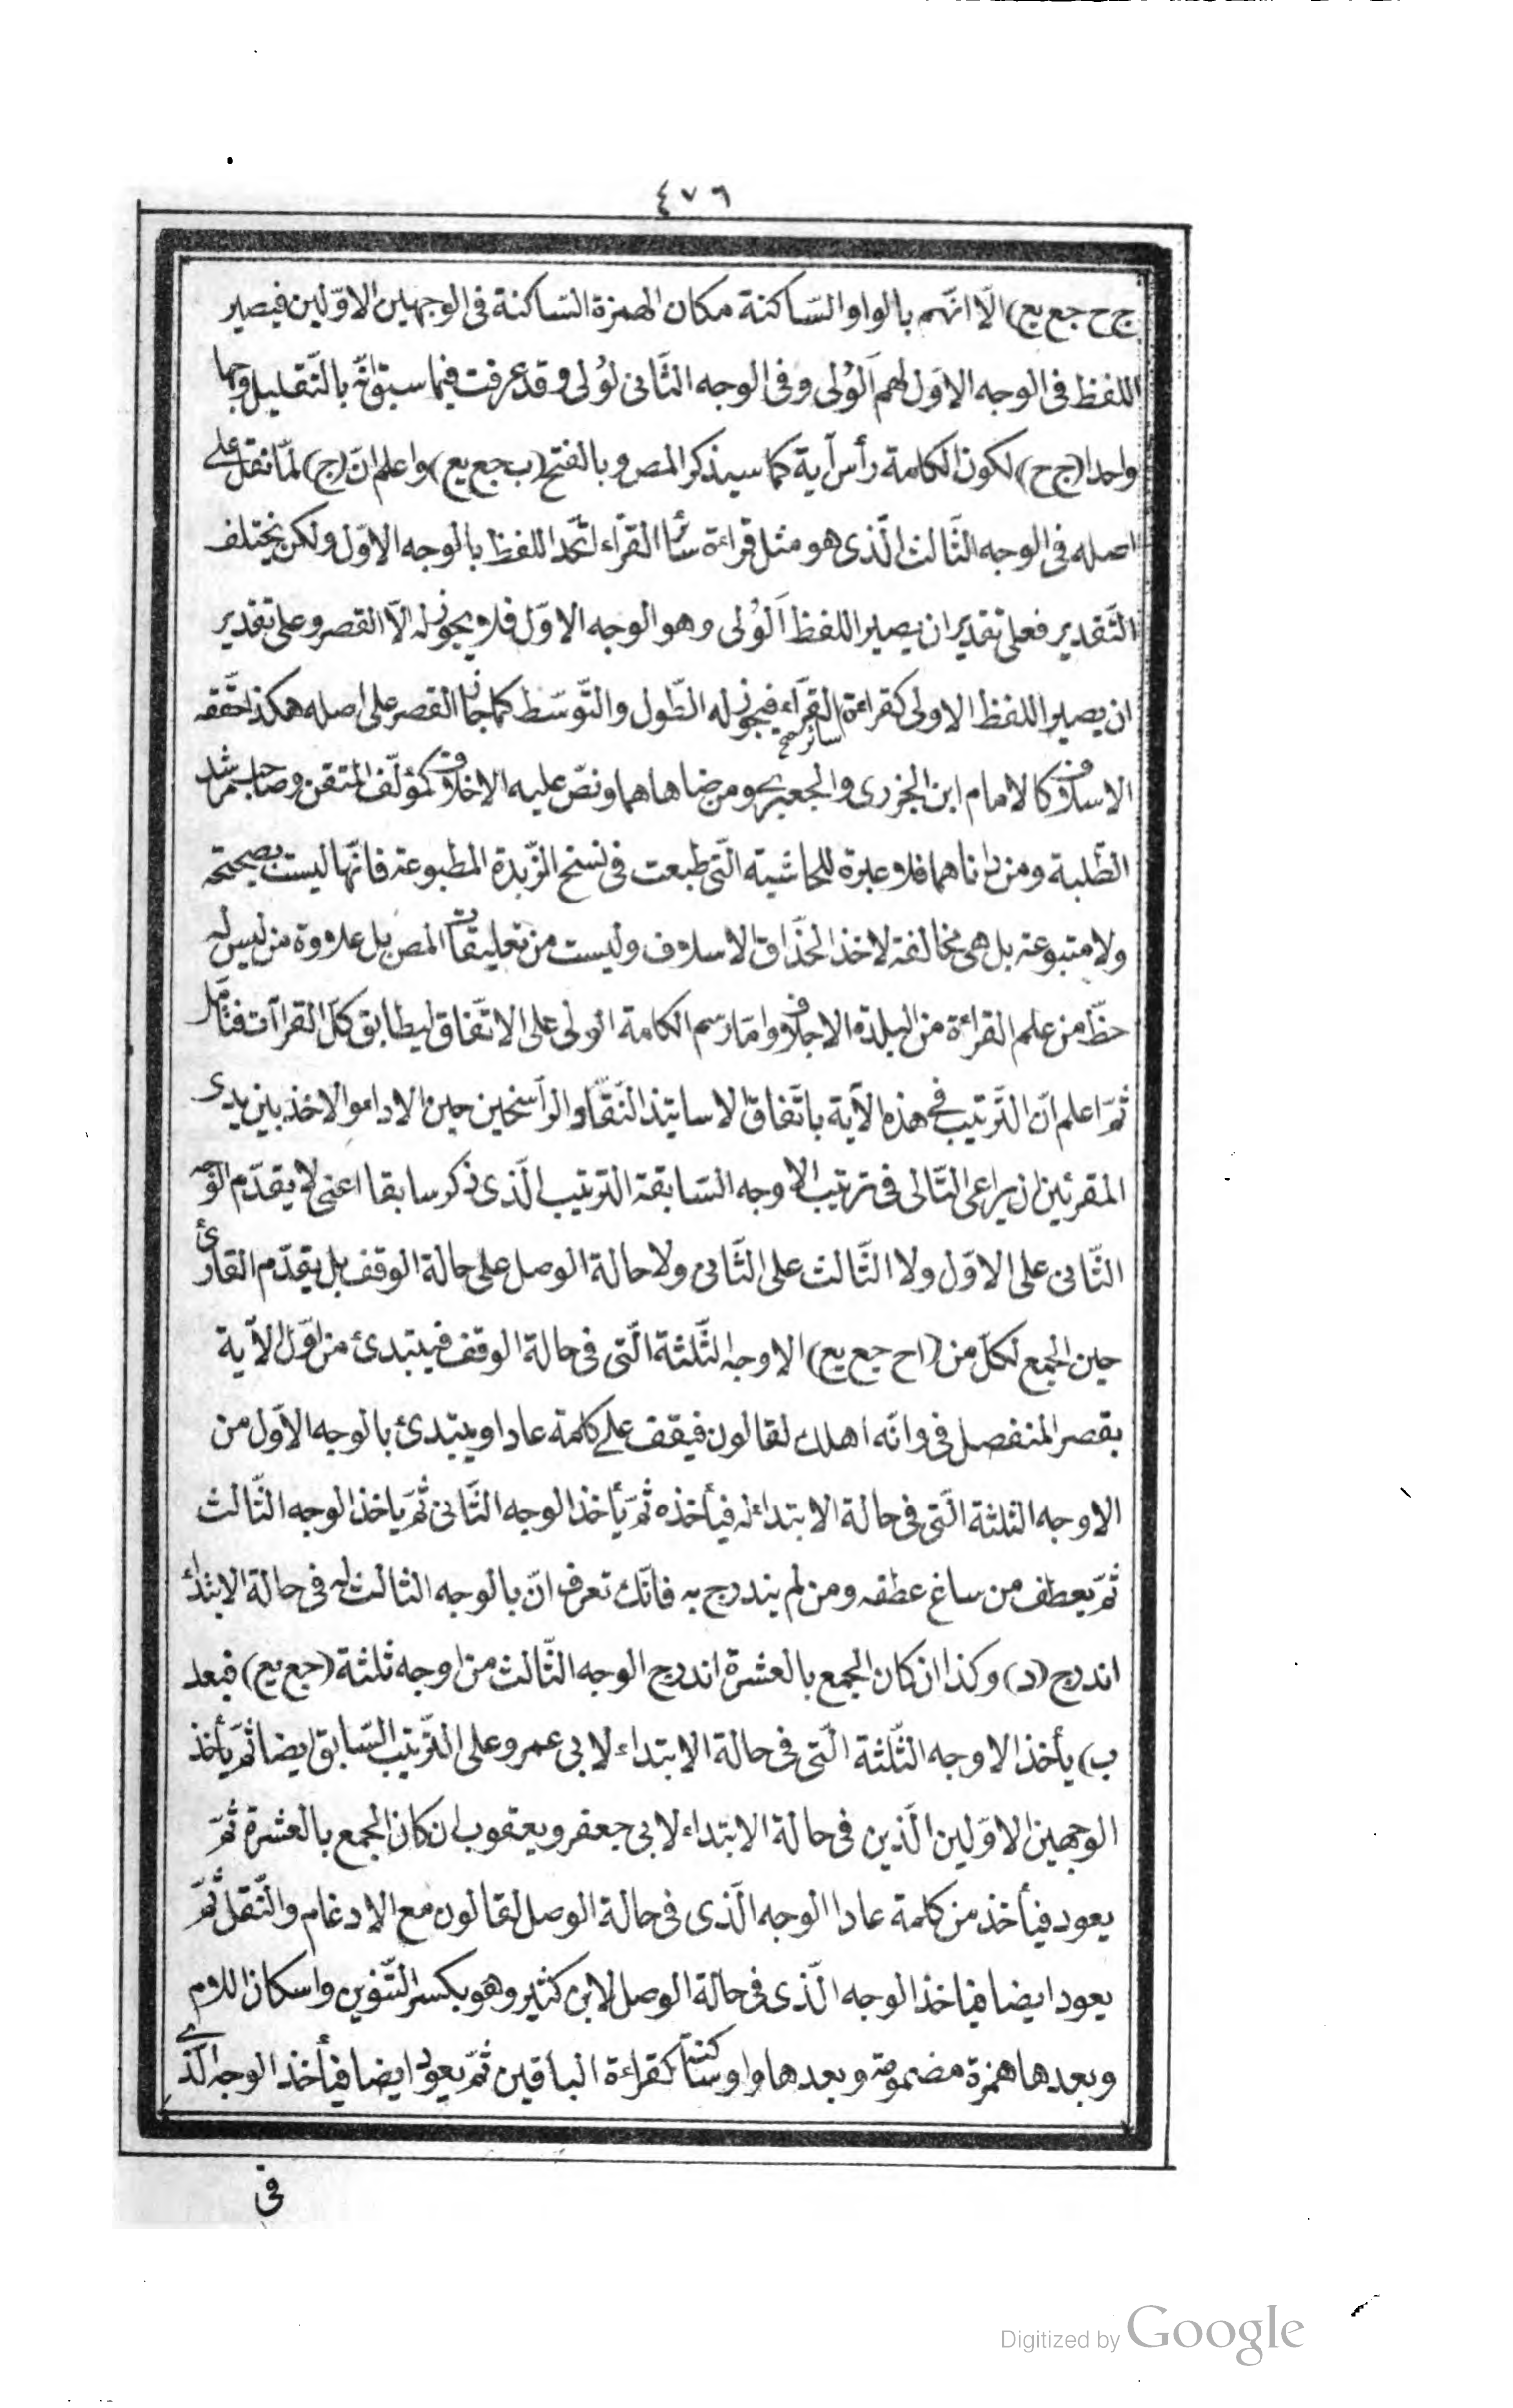 ٤٧٦
ج ح جع يع) الّا انّهم بالواو السّاكنة مكان الهمزة السّاكنة فى الوجهين الاوّلين فيصير
اللفظ فى الوجه الاوّل لهم اَلُولى وفى الوجه الثّانى لُولى وقد عرفت فيما سبق انّه بالتّقليل وجها
واحدا (ج ح) لكون الكلمة رأس آية كما سيذكر المص وبالفتح (ب جع يع) واعلم انّ (ج) لمّا نقل على
اصله فى الوجه الثّالث الّذى هو مثل قراءة سائر القرّاء اتّحد اللفظ بالوجه الاوّل ولكن يختلف
التّقدير فعلى تقدير ان يصير اللفظ اَلُولى وهو الوجه الاوّل فلا يجوز له الّا القصر وعلى تقدير
ان يصير اللفظ الاولى كقراءة سائر القرّاء فيجوز له الطّول والتّوسّط كما جاز القصر على اصله هكذا حقّقه
الاسلاف كالامام ابن الجزرى والجعبرى ومن ضاهاهما ونصّ عليه الاخلاف كمؤلّف المتقن وصاحب مرشد
الطّلبة ومن داناهما فلا عبرة للحاشية الّتى طبعت فى نسخ الزّبدة المطبوعة فانّها ليست بصحيحة
ولا متبوعة بل هى مخالفة لاخذ الحذّاق الاسلاف وليست من تعليقات المص بل علاوة من ليس له
حظّ من علم القراءة من البلدة الاجلاف وامّا رسم الكلمة الولى على الاتّفاق ليطابق كلّ القراآت فتأمّل
ثمّ اعلم انّ التّرتيب فى هذه الآية باتّفاق الاساتيذ النّقّاد والرّاسخين حين الاداء والاخذ بين يدى
المقرئين ان يراعى التّالى فى ترتيب الاوجه السّابقة التّرتيب الّذى ذكر سابقا اعنى لا يقدّم الوجه
الثّانى على الاوّل ولا الثّالث على الثّانى ولا حالة الوصل على حالة الوقف بل يقدّم القارئ
حين الجمع لكلّ من (ا ح جع يع) الاوجه الثّلثة الّتى فى حالة الوقف فيبتدئ من اوّل الآية
بقصر المنفصل فى وانّه اهلك لقالون فيقف على كلمة عادا ويبتدئ بالوجه الاوّل من
الاوجه الثلثة الّتى فى حالة الابتداء له فيأخذه ثمّ يأخذ الوجه الثّانى ثمّ ياخذ الوجه الثّالث
ثمّ يعطف من ساغ عطفه ومن لم يندرج به فانّك تعرف انّ بالوجه الثالث له فى حالة الابتداء
اندرج (د) وكذا ان كان الجمع بالعشرة اندرج الوجه الثّالث من اوجه ثلثة (جع يع) فبعد
ب) يأخذ الاوجه الثّلثة الّتى فى حالة الابتداء لابى عمرو على التّرتيب السّابق ايضا ثمّ يأخذ
الوجهين الاوّلين الّذين فى حالة الابتداء لابى جعفر ويعقوب ان كان الجمع بالعشرة ثمّ
يعود فيأخذ من كلمة عادا الوجه الّذى فى حالة الوصل لقالون مع الادغام والنّقل ثمّ
يعود ايضا فياخذ الوجه الّذى فى حالة الوصل لابن كثير وهو بكسر التّنوين واسكان اللام
وبعدها همزة مضمومة وبعدها واو ساكنة كقراءة الباقين ثمّ يعود ايضا فيأخذ الوجه الّذى
فى
Digitized by Google